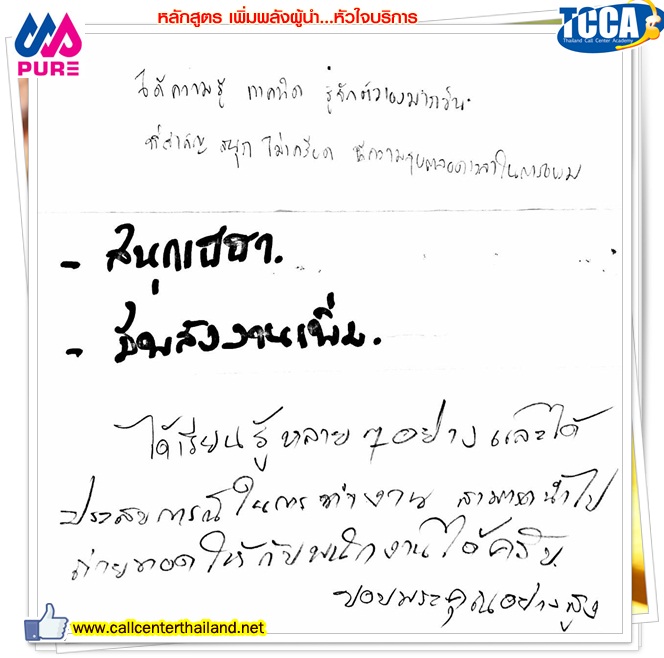 หลักสูตร เพิ่มพลังผู้นำ...หัวใจบริการ
PURE
TCCA
Thailand Call Center Academy
ได้ความรู้ แนวคิด รู้จักตัวเองมากขึ้น
ที่สำคัญ สนุก ไม่เครียด มีความสุขตลอดเวลาในการอบรม
- สนุกเฮฮา.
- มีพลังงานเพิ่ม.
ได้เรียนรู้หลายๆอย่าง และได้
ประสบการณ์ในการทำงาน สามารถนำไป
ถ่ายทอดให้กับพนักงานได้ครับ.
ขอบพระคุณอย่างสูง
www.callcenterthailand.net